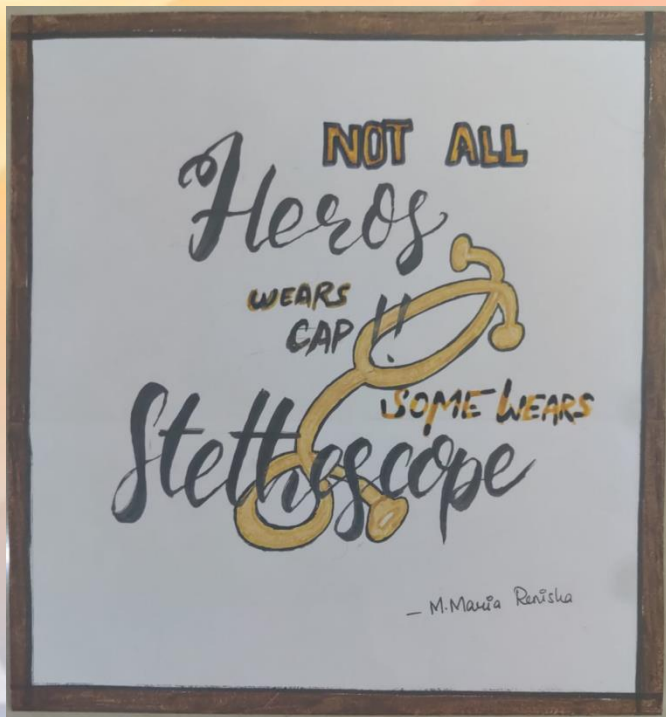 NOT ALL
Heros
WEARS
CAP !!
SOME WEARS
Stethoscope
- M.Maria Renisha